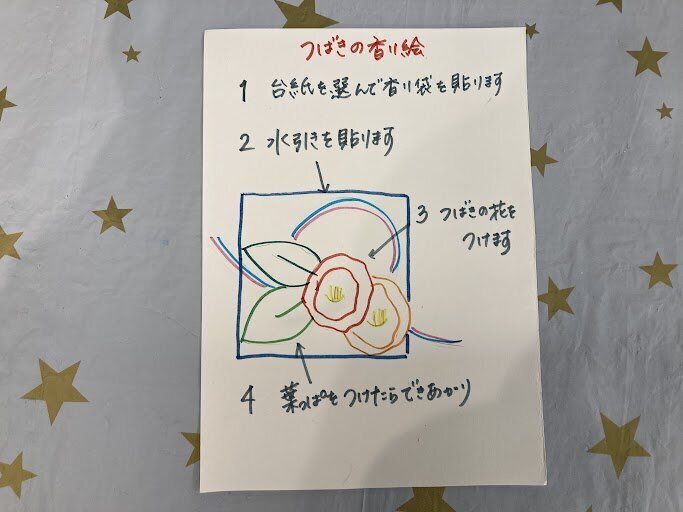 つばきの香り絵
1 台紙を選んで香り袋を貼ります
2 水引きを貼ります
3 つばきの花を
つけます
4 葉っぱをつけたらできあがり